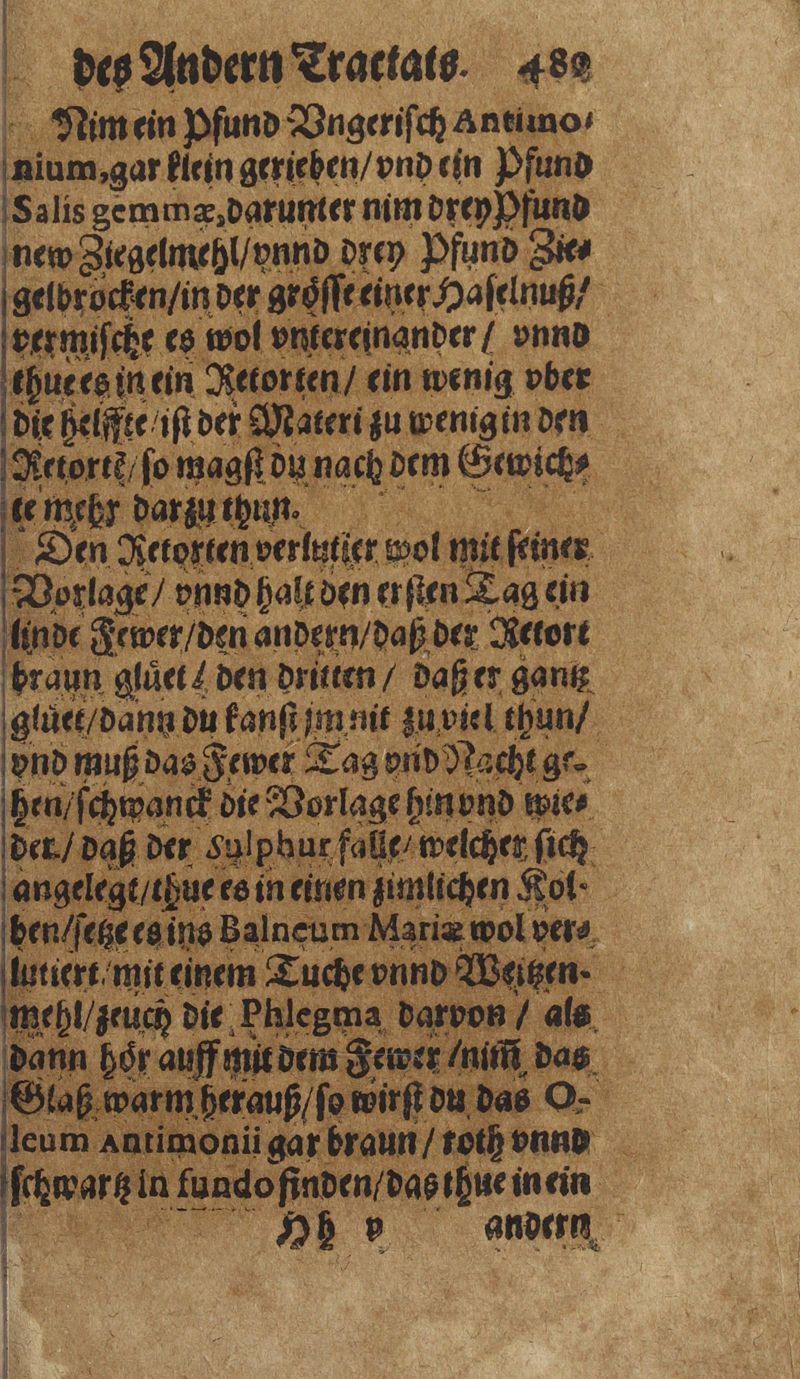 des Andern Tractats. 489
Nim ein Pfund Vngerisch Antimo-
nium, gar klein gerieben/ vnd ein Pfund
Salis gemmæ, darunter nim drey Pfund
new Ziegelmehl/ vnnd drey Pfund Zie-
gelbrocken/ in der grösse einer Haselnuß/
vermische es wol vntereinander/ vnnd
thue es in ein Retorten/ ein wenig vber
die helffte/ ist der Materi zu wenig in den
Retortẽ/ so magst du nach dem Gewich-
te mehr darzu thun.
Den Retorten verlutier wol mit seiner
Vorlage/ vnnd halt den ersten Tag ein
linde Fewer/ den andern/ daß der Retort
braun glüet/ den dritten/ daß er gantz
glüet/ dann du kanst jm nit zu viel thun/
vnd muß das Fewer Tag vnd Nacht ge-
hen/ schwanck die Vorlage hin vnd wie-
der/ daß der Sulphur falle/ welcher sich
angelegt/ thue es in einen zimlichen Kol-
ben/ setze es ins Balneum Mariæ wol ver-
lutiert/ mit einem Tuche vnnd Weitzen-
mehl/ zeuch die Phlegma darvon/ als
dann hör auff mit dem Fewer/ nim̃ das
Glaß warm herauß/ so wirst du das O-
leum Antimonii gar braun/ roth vnnd
schwartz in fundo finden/ das thue in ein
Hh v andern